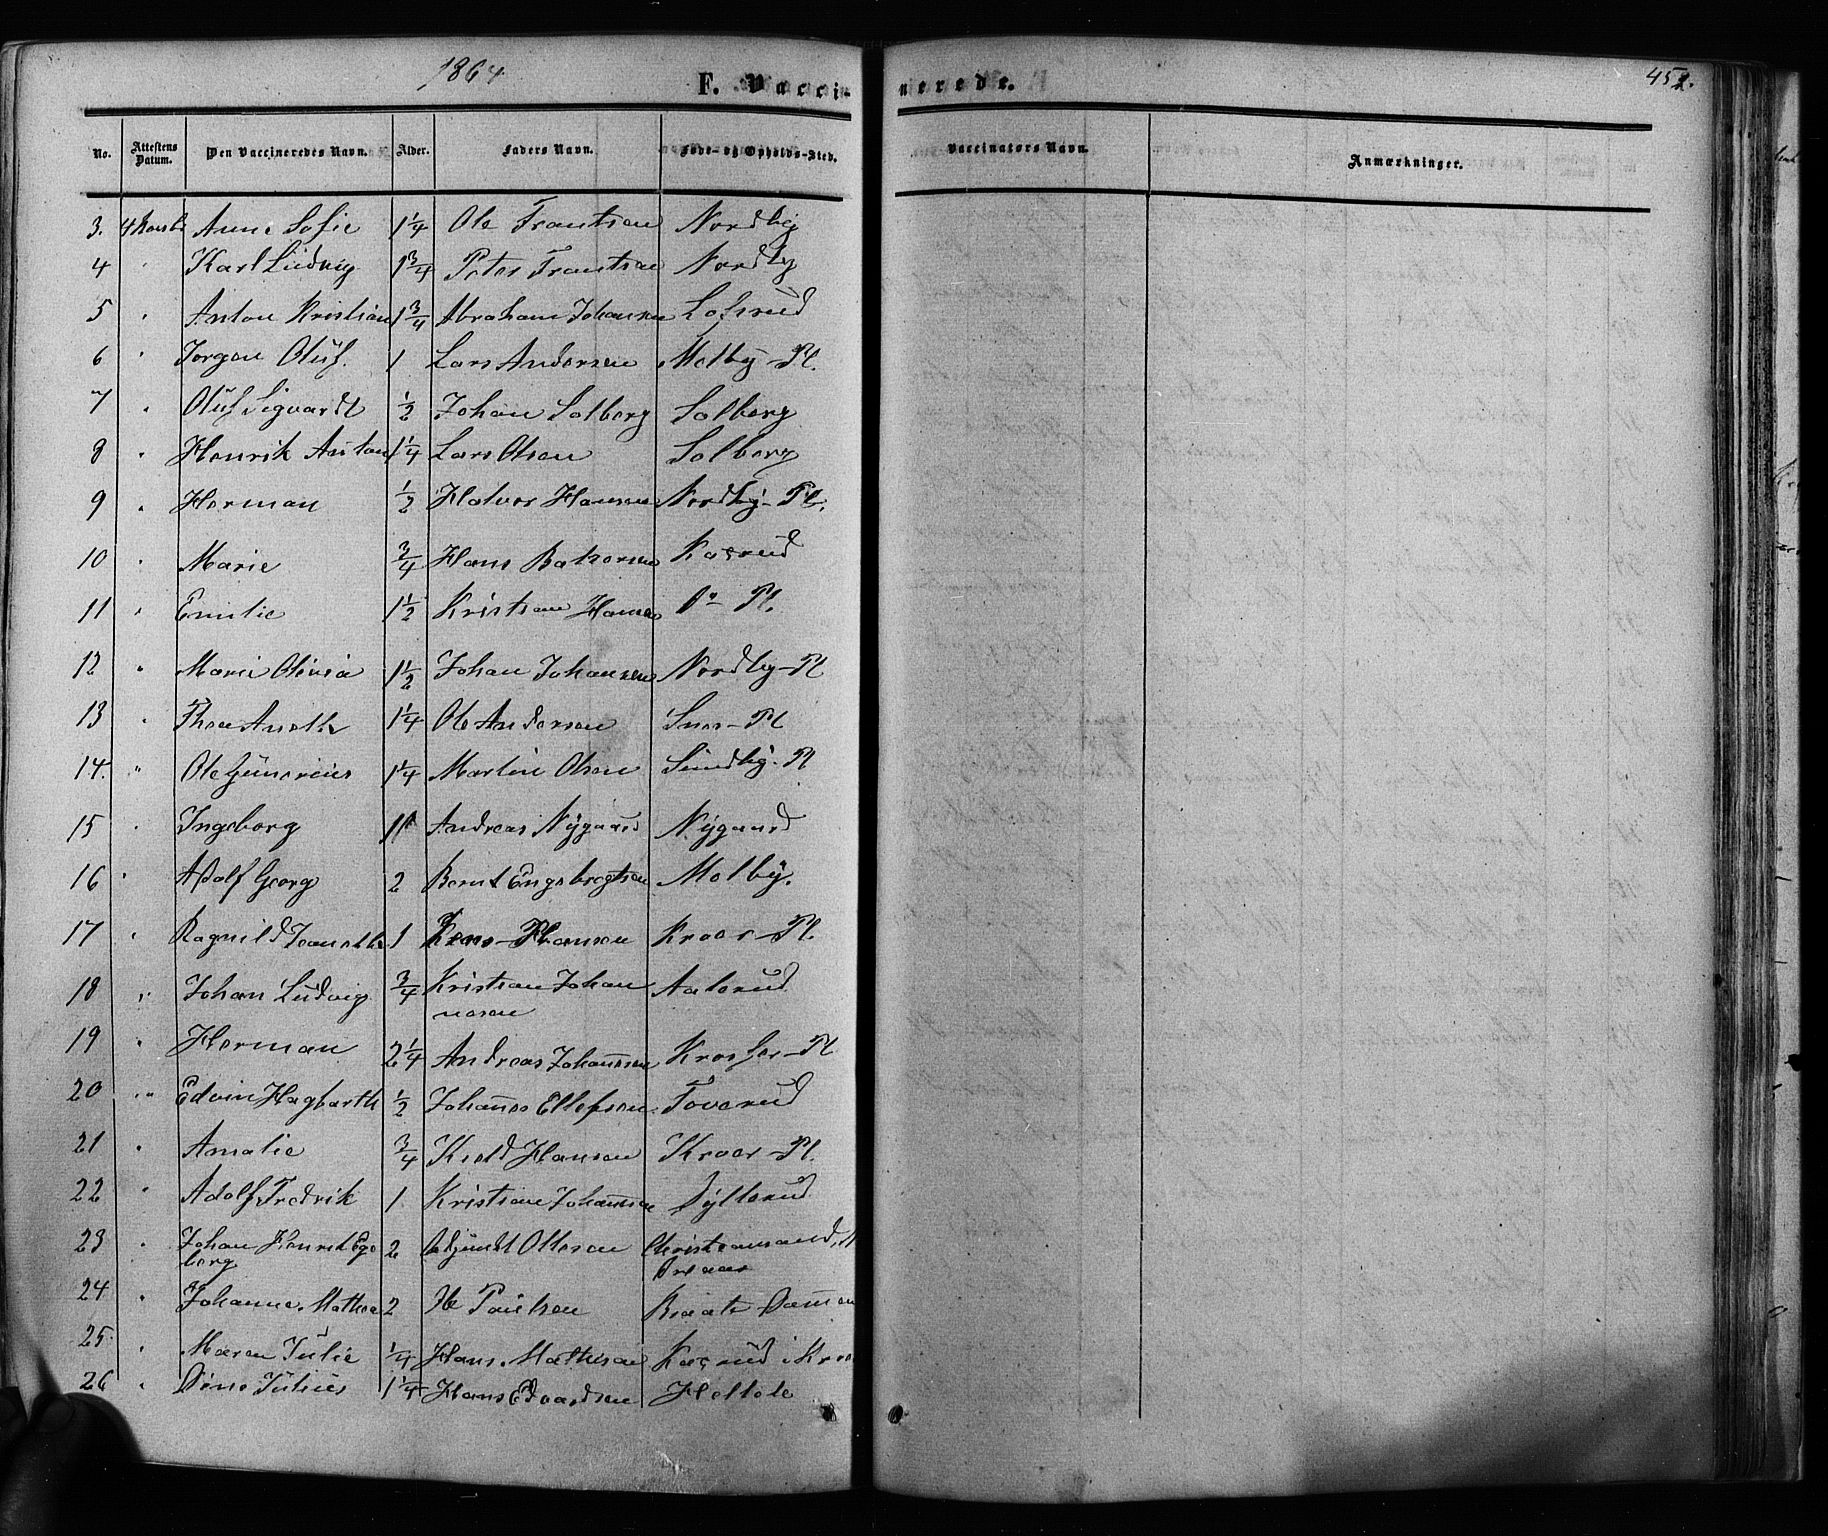 1864
F. Vacci- nerede.
452.
No. Attestens Datum. Den Vaccineredes Navn. Alder. Faders Navn. Føde- og Opholds-Sted. Vaccinators Navn. Anmærkninger.
3. Anne Sofie 1 1/4 Ole Frantsen Nordby
4 " Karl Ludvig 1 3/4 Peter Frantsen Nordby
5 " Anton Kristian 1 3/4 Abraham Johansen Lofsrud
6 " Jørgen Oluf. 1 Lars Andersen Melby-Pl.
7 " Oluf Sigvardt 1/2 Johan Solberg Solberg
8 " Henrik Anton 1 1/4 Lars Olsen Solberg
9 " Herman 1/2 Halvor Hansen Nordby-Pl.
10 " Marie 3/4 Hans Kaxrud
11 " Emilie 1 1/2 Kristian Hansen Do Pl.
12 " Marie Olivia 1 1/2 Johan Johansen Nordby-Pl
13 " Thea Aneth 1 1/4 Ole Andersen Pl
14. " Ole Gunerius 1 1/4 Martin Olsen Sundby-Pl
15 " Ingeborg 11 Andreas Nygaard Nygaard
16 " Adolf Georg 2 Bernt Engebregtsen Melby.
17 " Ragnild Jeanette 1 Jens Hansen Kroer-Pl.
18 " Johan Ludvig 3/4 Kristian Johan
nesen Aalerud
19 " Herman 2 1/4 Andreas Johannesen Pl
20 " Edvin Hagbarth 1/2 Johannes Ellefsen Toverud
21 " Amalie 3/4 Kield Hansen Kroer-Pl.
22 " Adolf Fredrik 1 Kristian Johannsen Dyllerud
23 " Johan Henrik Ege
berg 2 Ottesen Christiansand,
24 " Johanne Mathea 2 Paulsen
25. " Maren Julie 1/4 Hans Mathisen Kaxrud i Kroer
26 " Julius 1 1/4 Hans Edvardsen Holtole